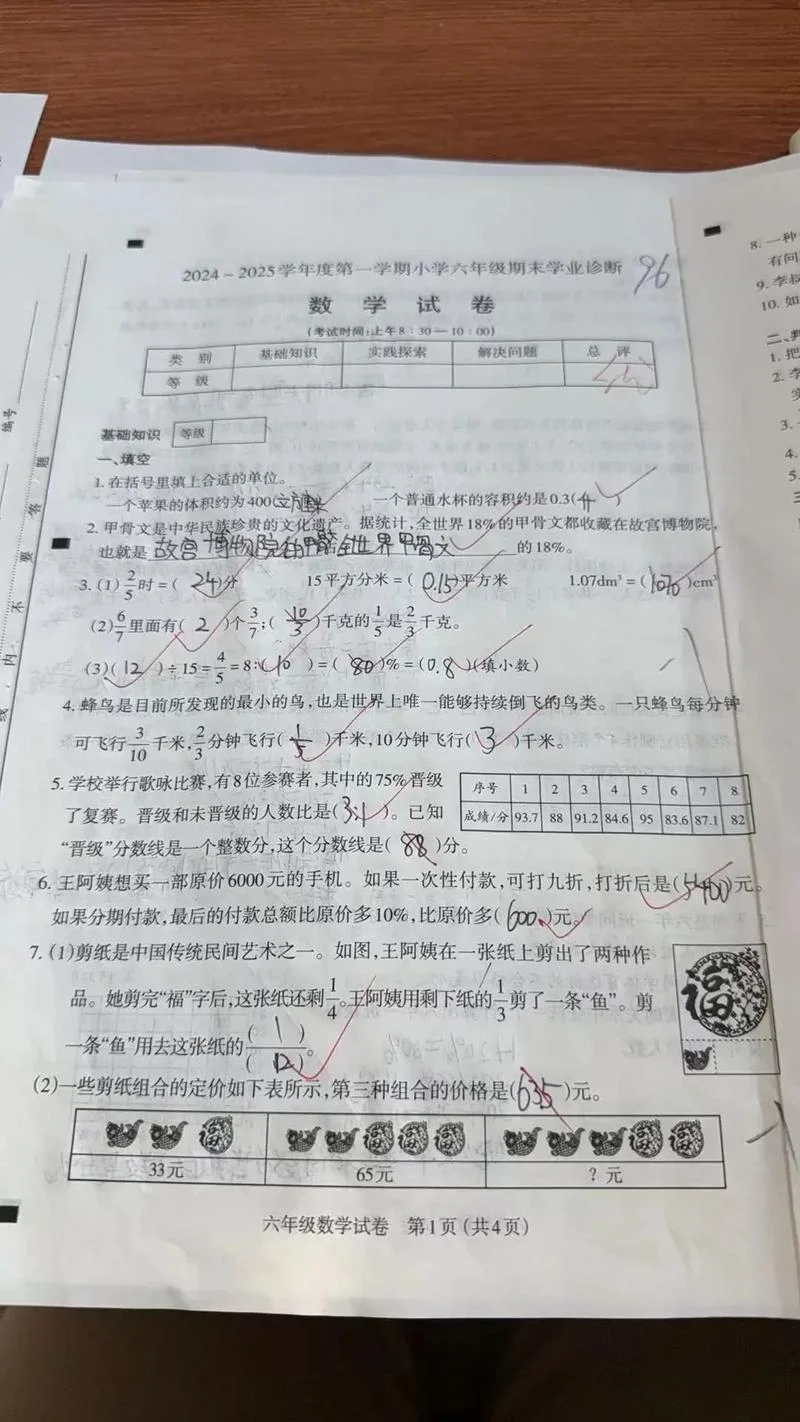 2024-2025学年度第一学期小学六年级期末学业诊断 96
数 学 试 卷
(考试时间:上午8:30—10:00)
类 别 基础知识 实践探索 解决问题 总 评
等 级
基础知识 等级
一、填空
1.在括号里填上合适的单位。
一个苹果的体积约为400(立方厘米 一个普通水杯的容积约是0.3(升)
2.甲骨文是中华民族珍贵的文化遗产。据统计,全世界18%的甲骨文都收藏在故宫博物院,
也就是 故宫博物院的甲骨 全世界甲骨文 的18%。
3.(1) 2/5时=( 24 )分 15平方分米=( 0.15 )平方米 1.07dm³=(1070)cm³
(2) 6/7里面有( 2 )个3/7;( 10/3 )千克的1/5是2/3千克。
(3)( 12 )÷15=4/5=8:( 10 )=( 80 )%=(0.8)(填小数)
4.蜂鸟是目前所发现的最小的鸟,也是世界上唯一能够持续倒飞的鸟类。一只蜂鸟每分钟
可飞行3/10千米,2/3分钟飞行( 1/5 )千米,10分钟飞行( 3 )千米。
5.学校举行歌咏比赛,有8位参赛者,其中的75%晋级
了复赛。晋级和未晋级的人数比是(3:1)。已知
“晋级”分数线是一个整数分,这个分数线是( 88 )分。
序号 1 2 3 4 5 6 7 8
成绩/分 93.7 88 91.2 84.6 95 83.6 87.1 82
6.王阿姨想买一部原价6000元的手机。如果一次性付款,可打九折,打折后是(5400)元。
如果分期付款,最后的付款总额比原价多10%,比原价多(600)元。
7.(1)剪纸是中国传统民间艺术之一。如图,王阿姨在一张纸上剪出了两种作
品。她剪完“福”字后,这张纸还剩1/4。王阿姨用剩下纸的1/3剪了一条“鱼”。剪
一条“鱼”用去这张纸的( 1 )/( 12 )。
福
(2)一些剪纸组合的定价如下表所示,第三种组合的价格是(635)元。
福 福 福 福 福 福
33元 65元 ?元
六年级数学试卷 第1页(共4页)
编号
线 内 不 要 答 题
8.一种
有问
9.李叔
10.如
二、判
1.把
2.李
实
3.
4.
5.
三